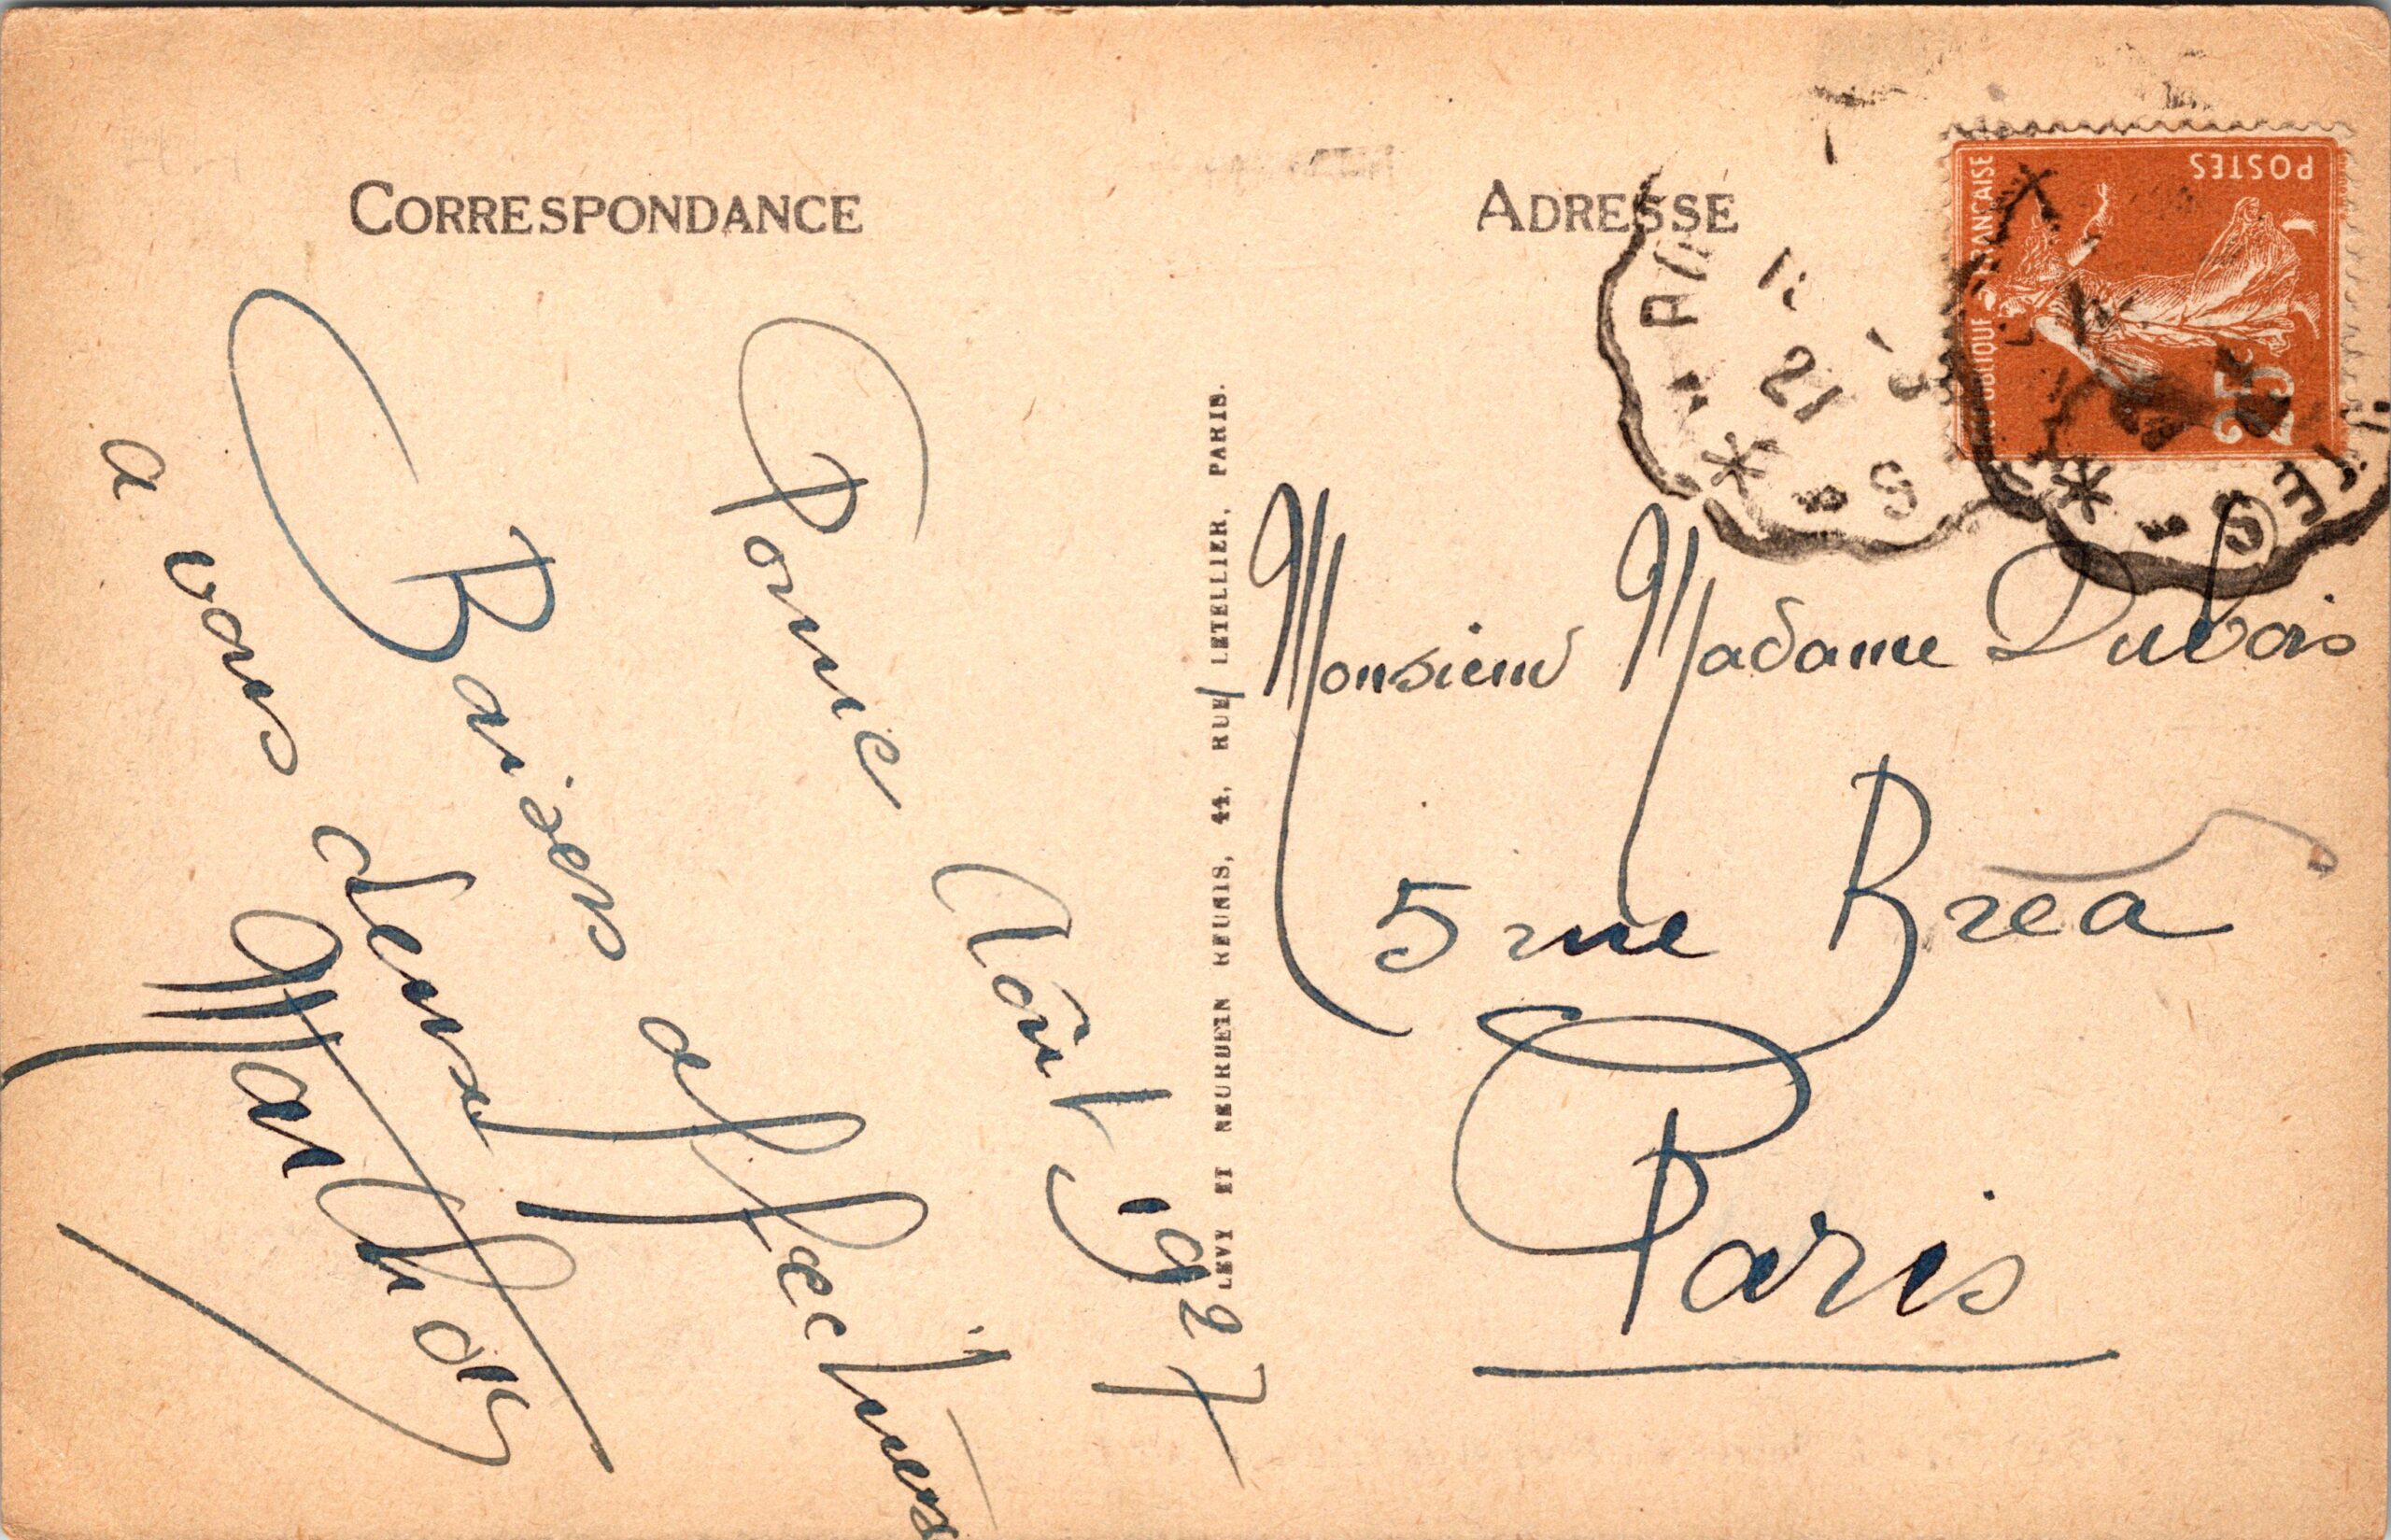 CORRESPONDANCE
Pornic Août 1927
Baisers affectueux
a vous deux
LEVY ET NEURDEIN REUNIS, 44, RUE LETELLIER, PARIS.
ADRESSE
FRANCAISE
POSTES
25
21
Monsieur Madame Dubois
5 rue Brea
Paris